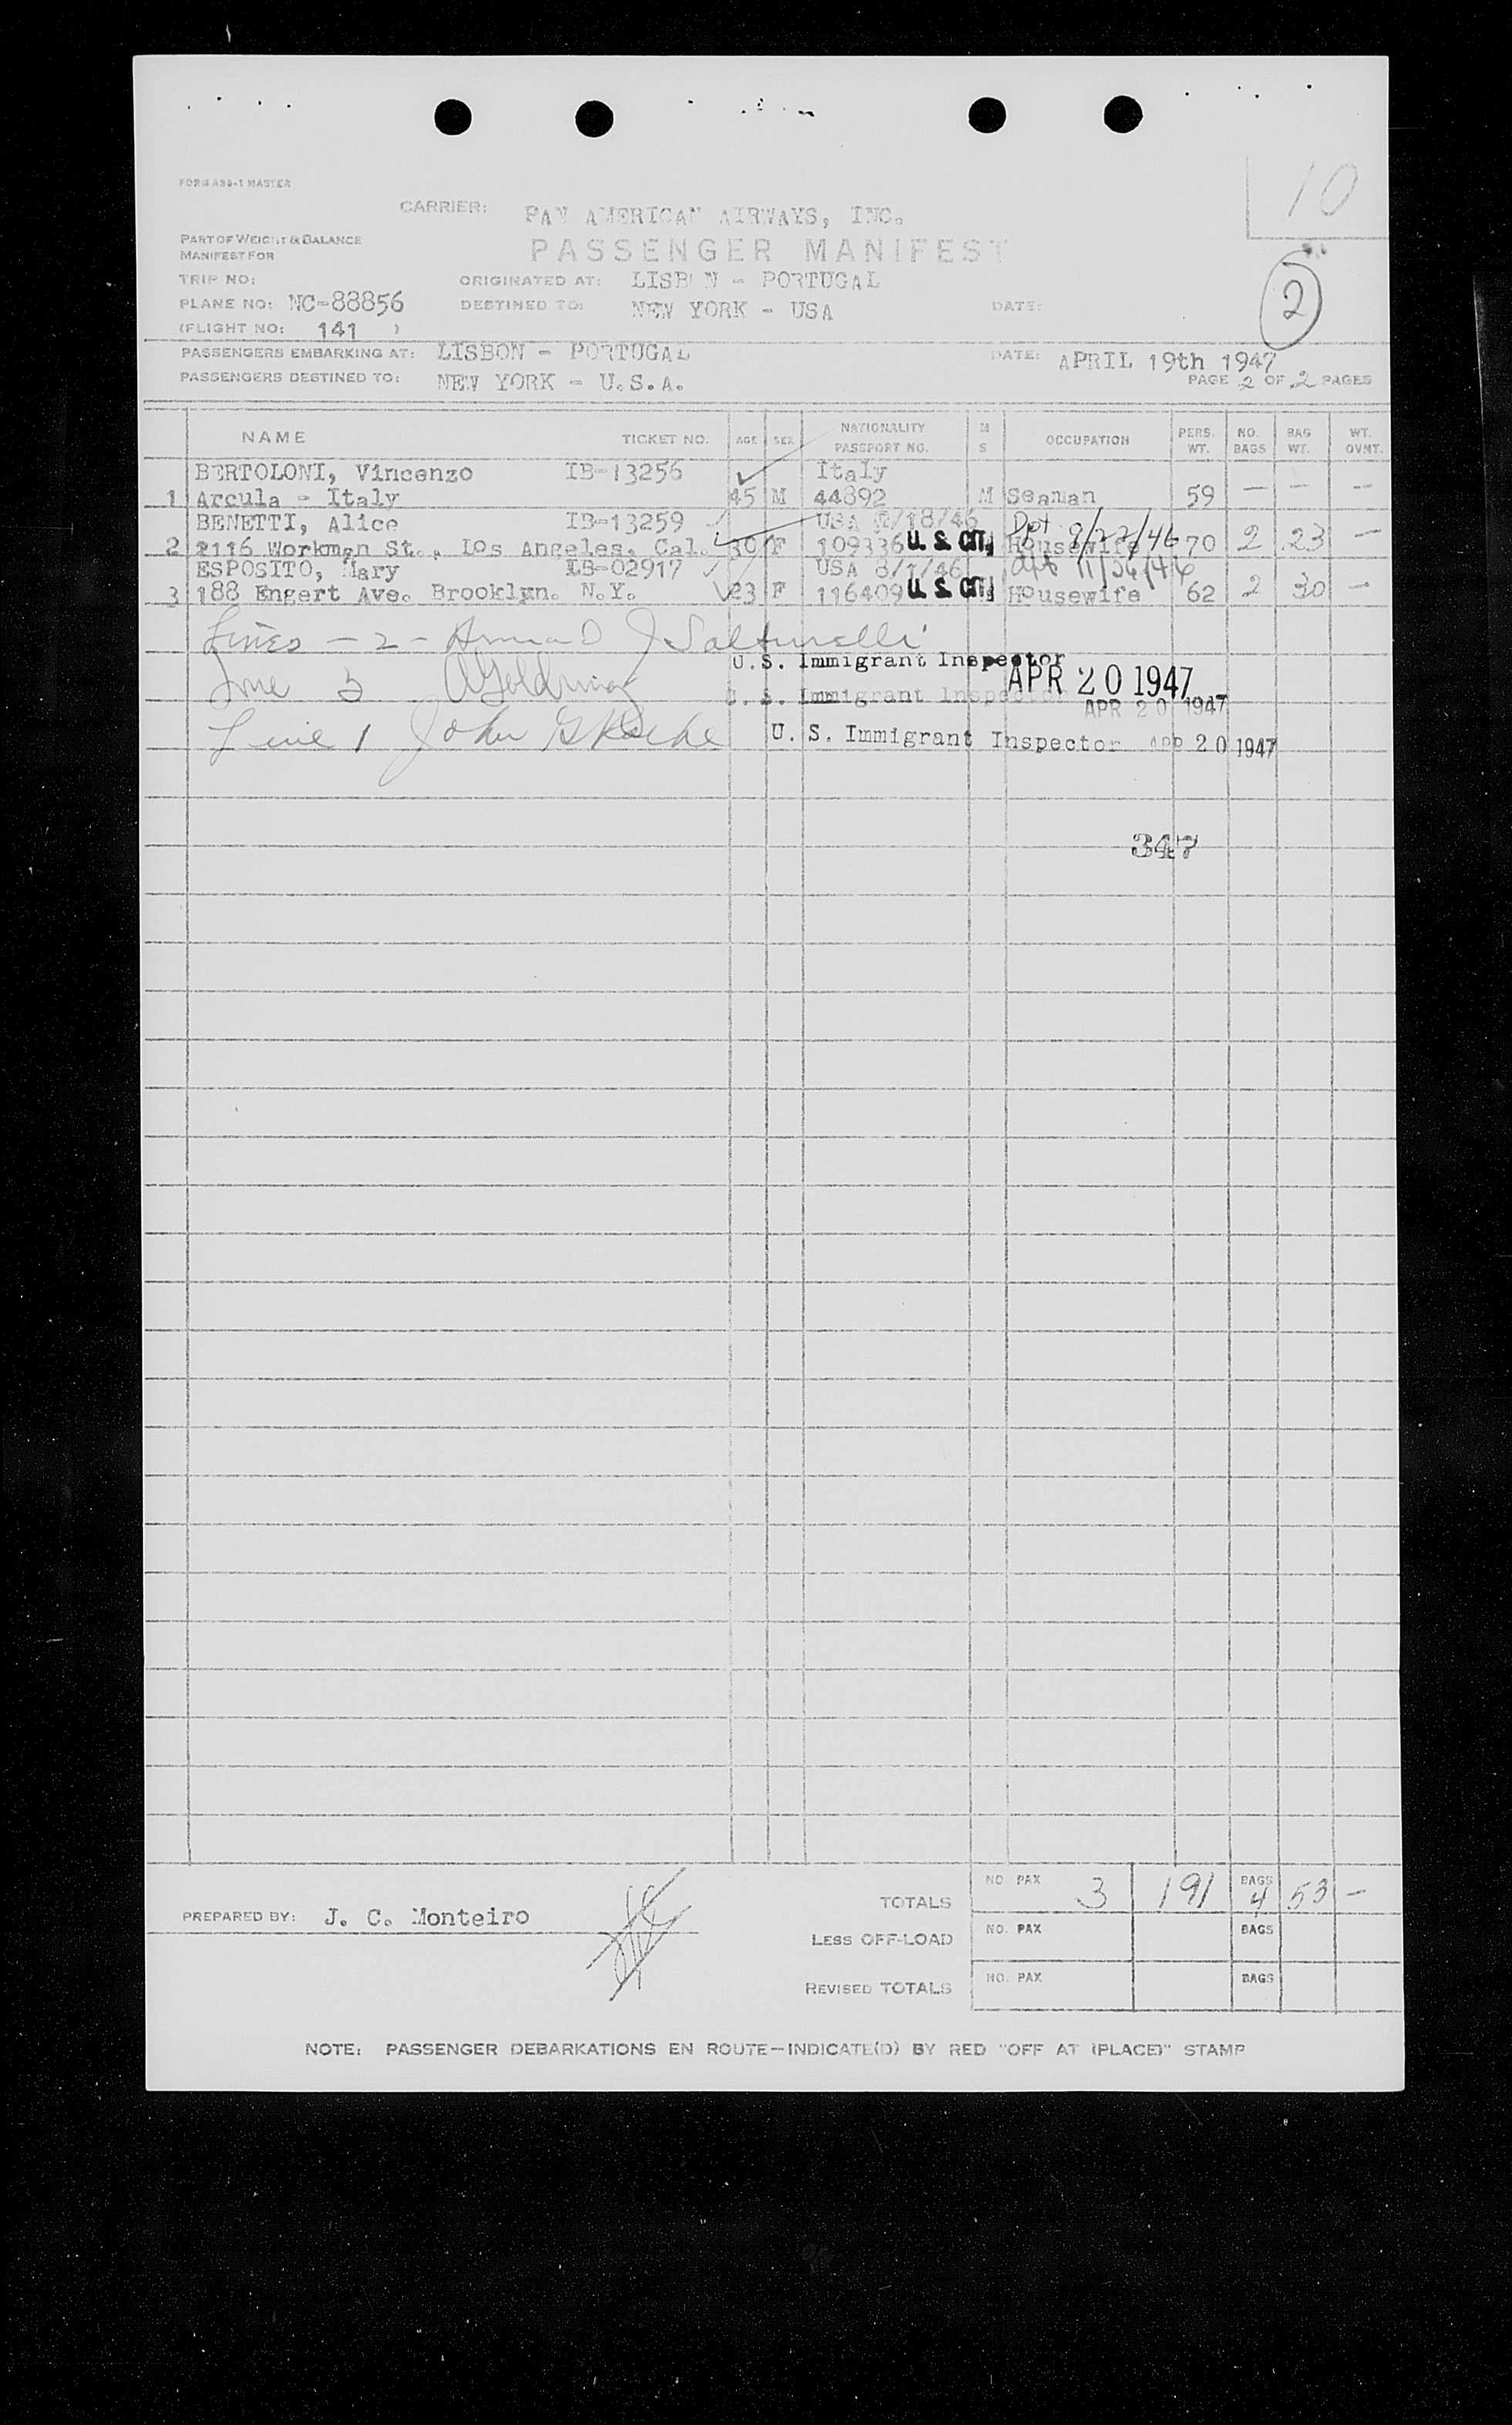 10
FORM A39-1 MASTER
CARRIER: PAN AMERICAN AIRWAYS, INC.
PART OF WEIGHT & BALANCE
MANIFEST FOR
PASSENGER MANIFEST
TRIP NO: ORIGINATED AT: LISB N - PORTUGAL
PLANE NO: NC-88856 DESTINED TO: NEW YORK - USA DATE: 2
(FLIGHT NO: 141 )
PASSENGERS EMBARKING AT: LISBON - PORTUGAL DATE: APRIL 19th 1947
PASSENGERS DESTINED TO: NEW YORK - U.S.A. PAGE 2 OF 2 PAGES
NAME TICKET NO. AGE SEX NATIONALITY PASSPORT NO. M S OCCUPATION PERS. WT. NO. BAGS BAG WT. WT. OVNT.
BERTOLONI, Vincenzo IB-13256 Italy
1 Arcula - Italy 45 M 44892 M Seaman 59 — — —
BENETTI, Alice IB-13259 USA /18/46 Dpt 8/22/46
2 2116 Workman St., Los Angeles. Cal. 30 F 109336 U. S. CIT. Housewife 70 2 23 —
ESPOSITO, Mary LB-02917 USA 8/1/46 dpt 11/26/46
3 188 Engert Ave. Brooklyn. N.Y. 23 F 116409 U. S. CIT. Housewife 62 2 30 —
Lines - 2 -
U.S. Immigrant Inspector APR 20 1947
Line 3
U. S. Immigrant Inspector APR 20 1947
Line 1 John
U. S. Immigrant Inspector APR 20 1947
347
TOTALS NO. PAX 3 191 BAGS 4 53 —
PREPARED BY: J. C. Monteiro
LESS OFF-LOAD NO. PAX BAGS
REVISED TOTALS NO. PAX BAGS
NOTE: PASSENGER DEBARKATIONS EN ROUTE—INDICATE(D) BY RED "OFF AT (PLACE)" STAMP